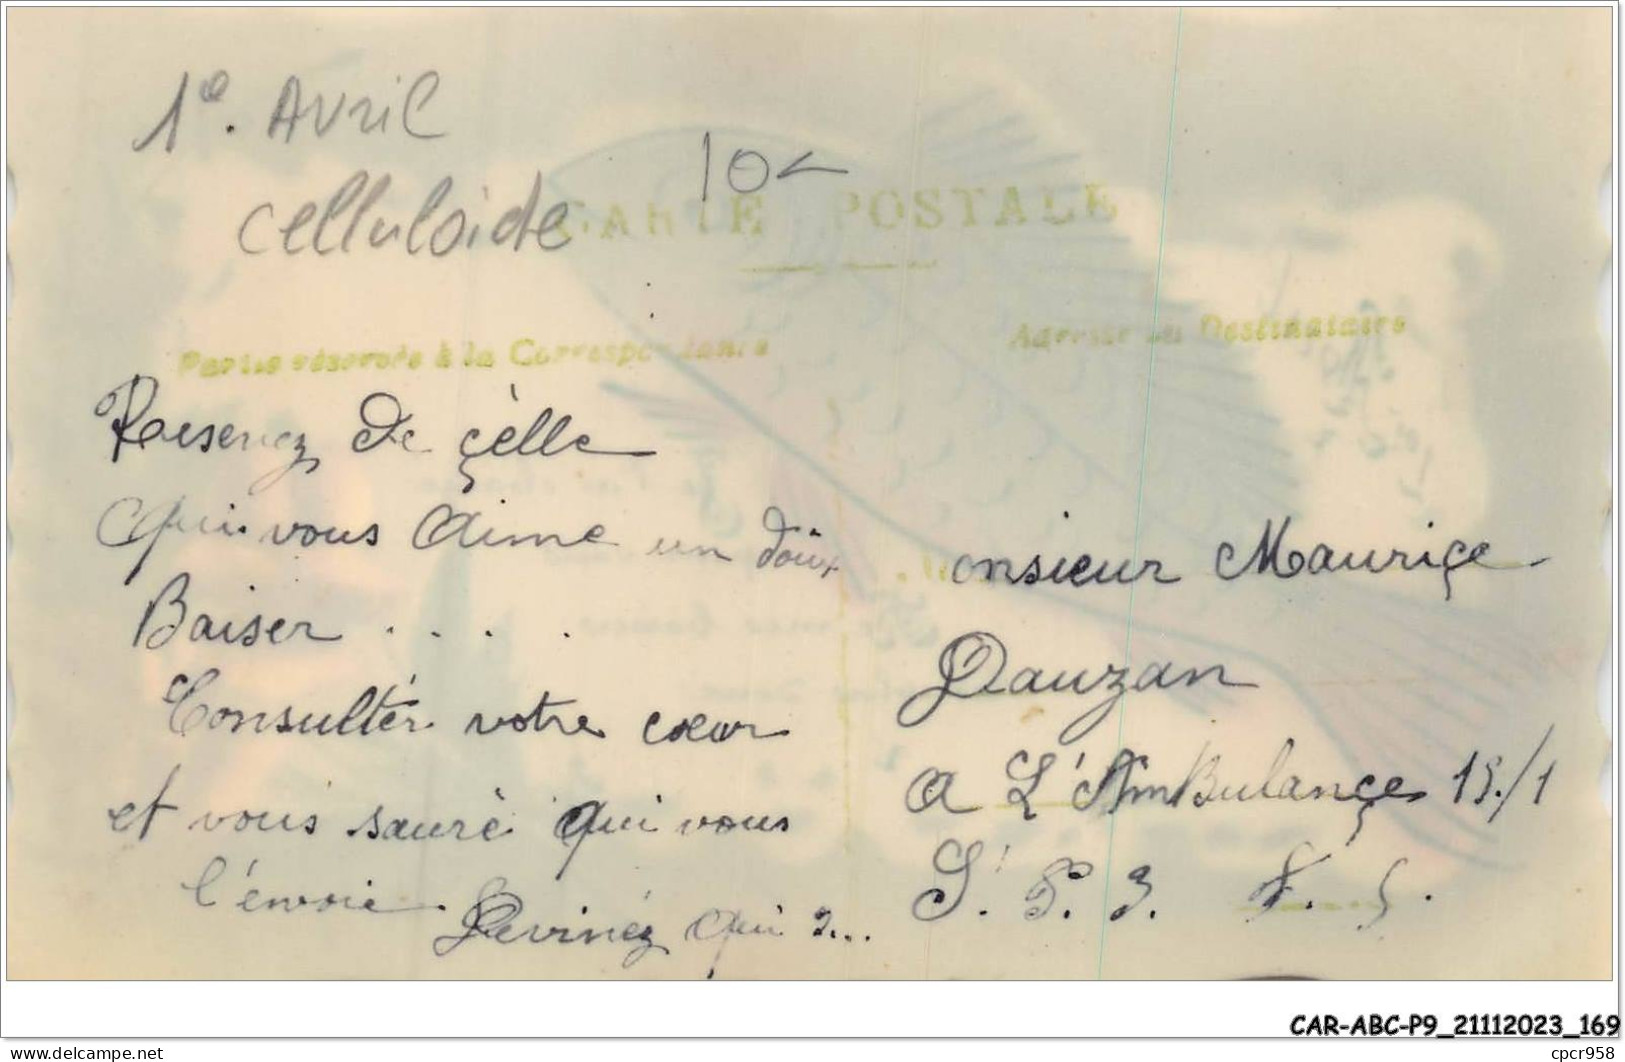 1e. Avril
celluloïde
10-
CARTE POSTALE
Partie réservée à la Correspondance
Adresse du Destinataire
Resevez de çelle
Qui vous aime un doux
Baiser . . . .
Consulter votre cœur
et vous saurè qui vous
l'envoie. Devinéz qui ?...
onsieur Mauriçe
Dauzan
a L'Ambulançe 15./1
S. P. 3.
CAR-ABC-P9_21112023_169
cpcr958